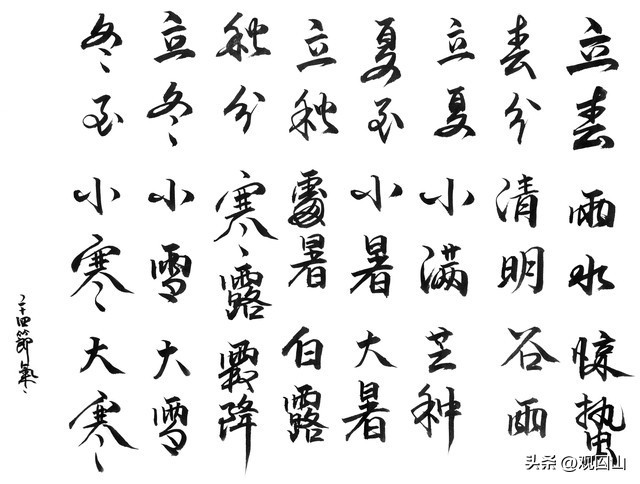 立春雨水惊蛰
春分清明谷雨
立夏小满芒种
夏至小暑大暑
立秋處暑白露
秋分寒露霜降
立冬小雪大雪
冬至小寒大寒
二十四節氣
头条